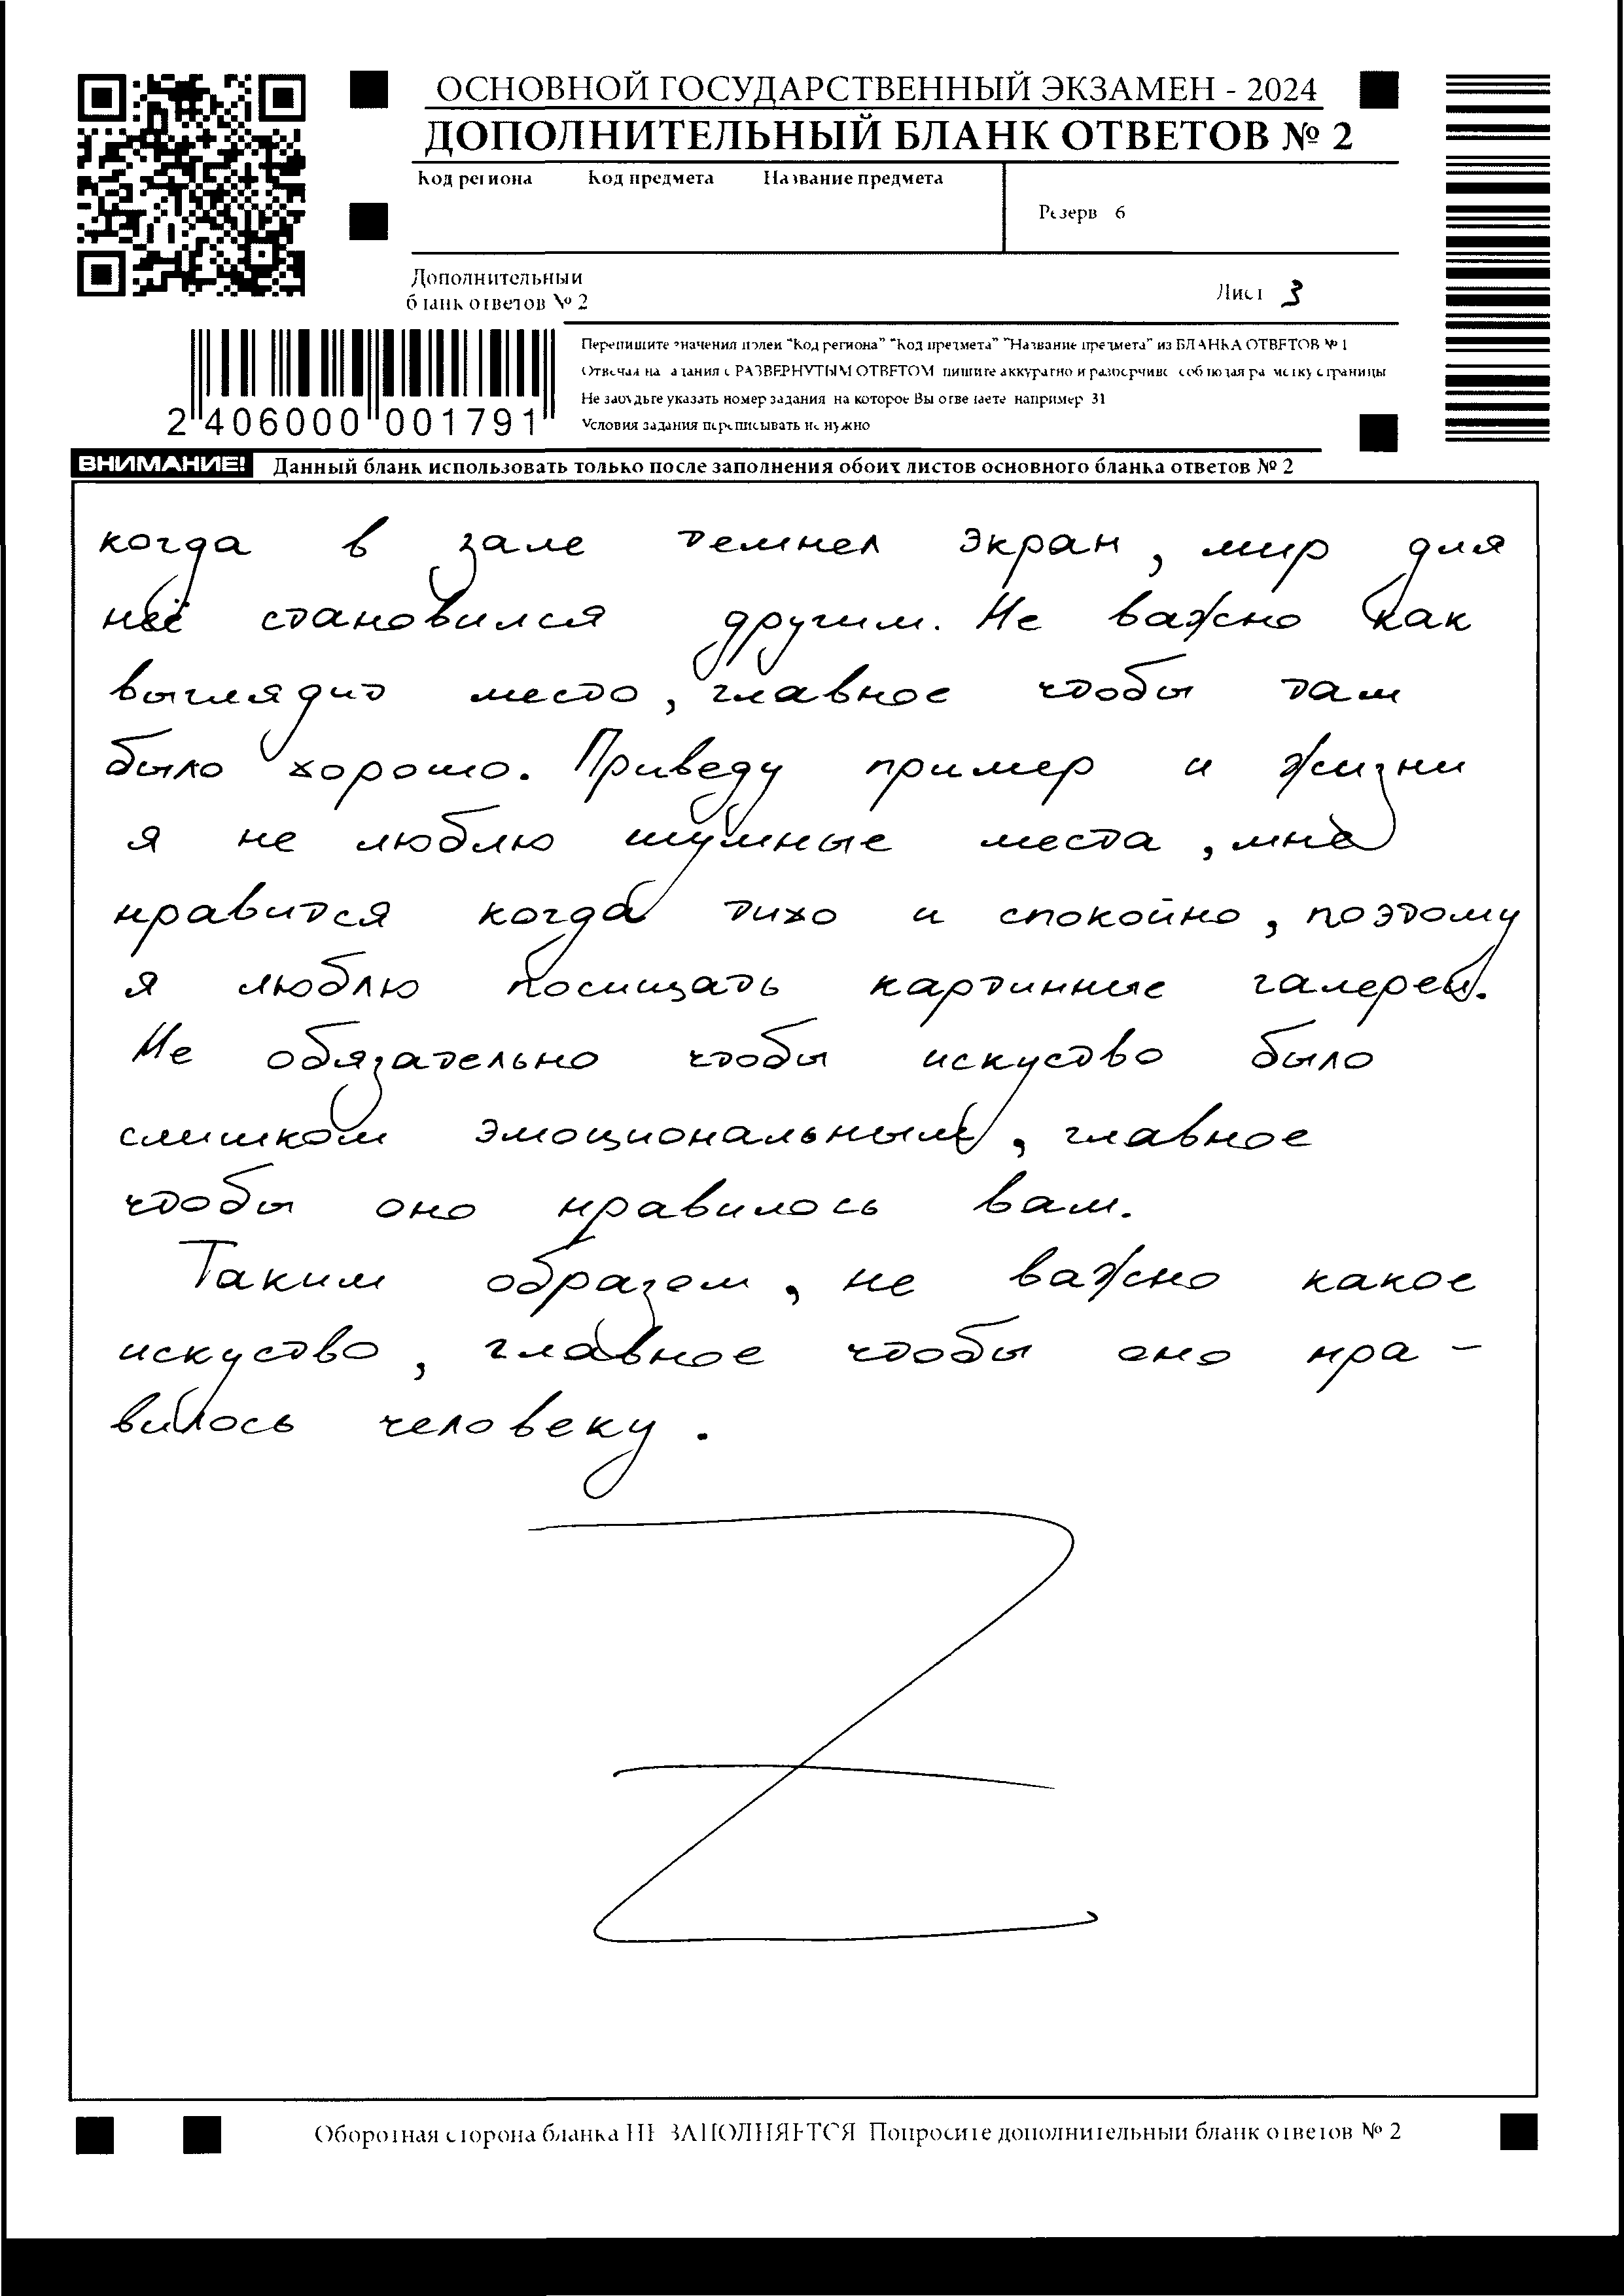 ОСНОВНОЙ ГОСУДАРСТВЕННЫЙ ЭКЗАМЕН - 2024
ДОПОЛНИТЕЛЬНЫЙ БЛАНК ОТВЕТОВ № 2
Код региона Код предмета Название предмета
Резерв 6
Дополнительный
бланк ответов № 2
Лист 3
Перепишите значения полей "Код региона" "Код предмета" "Название предмета" из БЛАНКА ОТВЕТОВ № 1
Отвечая на задания с РАЗВЕРНУТЫМ ОТВЕТОМ пишите аккуратно и разборчиво соблюдая разметку страницы
Не забудьте указать номер задания на которое Вы отвечаете например 31
Условия задания переписывать не нужно
2 406000 001791
ВНИМАНИЕ! Данный бланк использовать только после заполнения обоих листов основного бланка ответов № 2
когда в зале темнел экран, мир для
неё становился другим. Не важно как
выглядит место, главное чтобы там
было хорошо. Приведу пример и жизни
я не люблю шумные места, мне
нравится когда тихо и спокойно, поэтому
я люблю посищать картинные галереи.
Не обязательно чтобы искуство было
слишком эмоциональным, главное
чтобы оно нравилось вам.
Таким образом, не важно какое
искуство, главное чтобы оно нра-
вилось человеку.
Оборотная сторона бланка НЕ ЗАПОЛНЯЕТСЯ Попросите дополнительный бланк ответов № 2